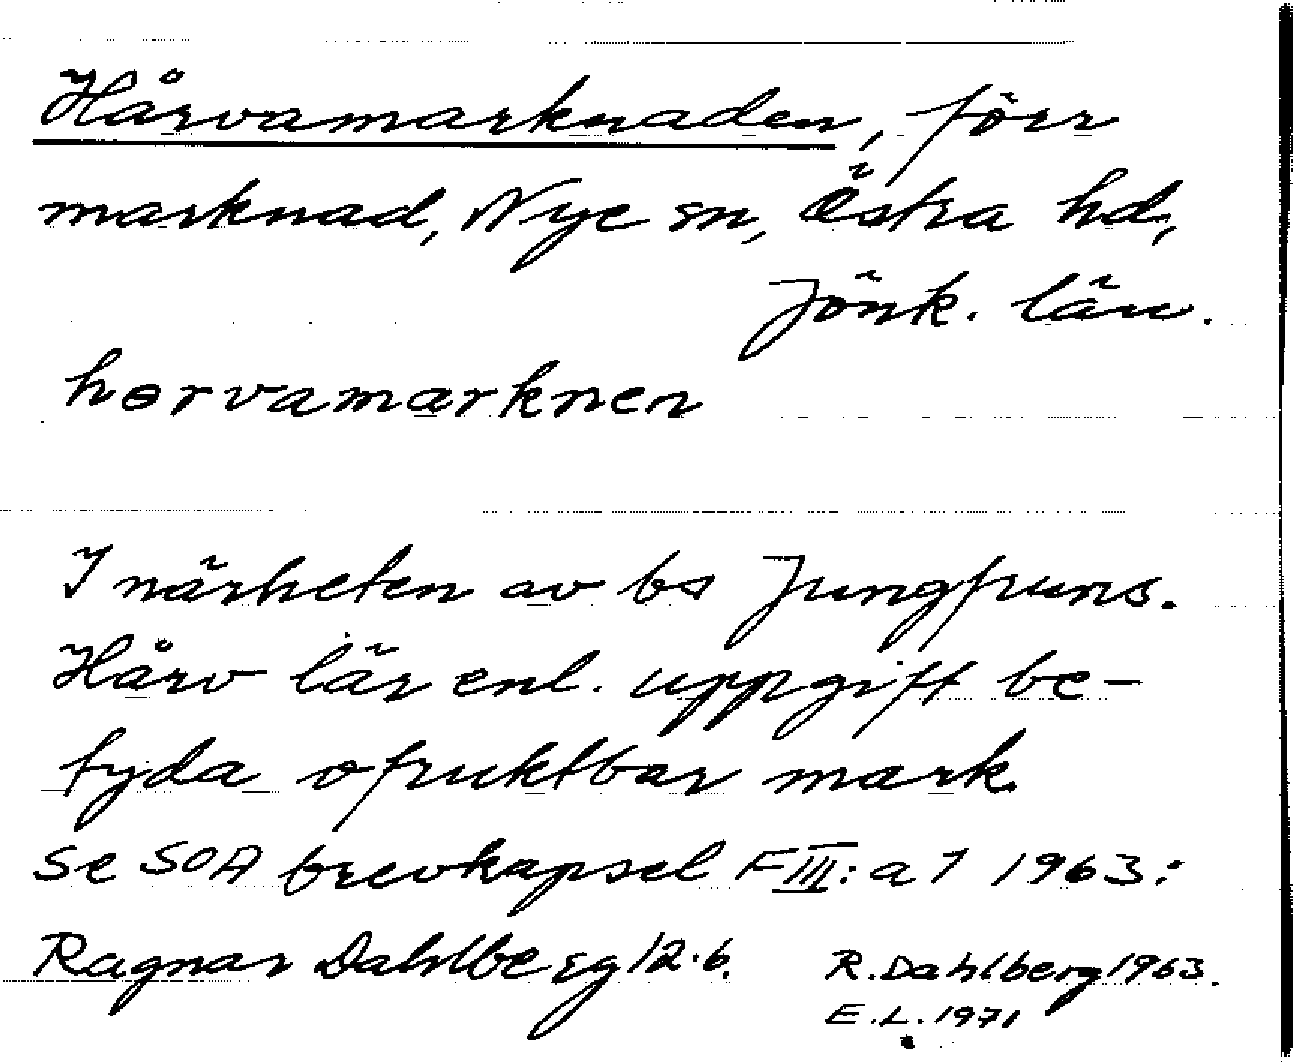 Hårvamarknaden, förr
marknad, Nye sn, Östra hd,
Jönk. län.
hørvamarknen
I närheten av bs Jungfruns.
Hårv lär enl. uppgift be-
tyda ofruktbar mark.
Se SOA brevkapsel FIII: a 7 1963:
Ragnar Dahlberg 12.6. R. Dahlberg 1963.
E.L. 1971